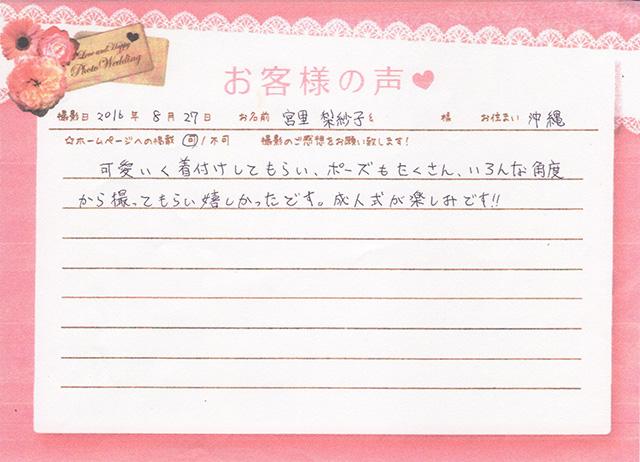 Love and Happy
Photo Wedding
お客様の声♥
撮影日 2016 年 8 月 27 日 お名前 宮里 梨紗子 様 お住まい 沖縄
☆ホームページへの掲載 可 / 不可 撮影のご感想をお願い致します!
可愛いく着付けしてもらい、ポーズもたくさん、いろんな角度
から撮ってもらい嬉しかったです。成人式が楽しみです!!